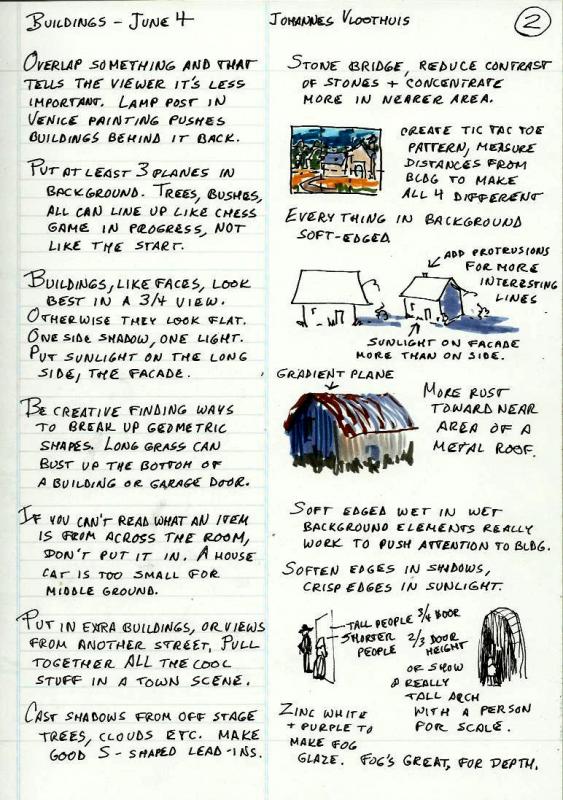 BUILDINGS - JUNE 4
JOHANNES VLOOTHUIS
2
OVERLAP SOMETHING AND THAT
TELLS THE VIEWER IT'S LESS
IMPORTANT. LAMP POST IN
VENICE PAINTING PUSHES
BUILDINGS BEHIND IT BACK.
PUT AT LEAST 3 PLANES IN
BACKGROUND. TREES, BUSHES,
ALL CAN LINE UP LIKE CHESS
GAME IN PROGRESS, NOT
LIKE THE START.
BUILDINGS, LIKE FACES, LOOK
BEST IN A 3/4 VIEW.
OTHERWISE THEY LOOK FLAT.
ONE SIDE SHADOW, ONE LIGHT.
PUT SUNLIGHT ON THE LONG
SIDE, THE FACADE.
BE CREATIVE FINDING WAYS
TO BREAK UP GEOMETRIC
SHAPES. LONG GRASS CAN
BUST UP THE BOTTOM OF
A BUILDING OR GARAGE DOOR.
IF YOU CAN'T READ WHAT AN ITEM
IS FROM ACROSS THE ROOM,
DON'T PUT IT IN. A HOUSE
CAT IS TOO SMALL FOR
MIDDLE GROUND.
PUT IN EXTRA BUILDINGS, OR VIEWS
FROM ANOTHER STREET, PULL
TOGETHER ALL THE COOL
STUFF IN A TOWN SCENE.
CAST SHADOWS FROM OFF STAGE
TREES, CLOUDS ETC. MAKE
GOOD S-SHAPED LEAD-INS.
STONE BRIDGE, REDUCE CONTRAST
OF STONES + CONCENTRATE
MORE IN NEARER AREA.
CREATE TIC TAC TOE
PATTERN, MEASURE
DISTANCES FROM
BLDG TO MAKE
ALL 4 DIFFERENT
EVERYTHING IN BACKGROUND
SOFT-EDGED
ADD PROTRUSIONS
FOR MORE
INTERESTING
LINES
SUNLIGHT ON FACADE
MORE THAN ON SIDE.
GRADIENT PLANE
MORE RUST
TOWARD NEAR
AREA OF A
METAL ROOF.
SOFT EDGED WET IN WET
BACKGROUND ELEMENTS REALLY
WORK TO PUSH ATTENTION TO BLDG.
SOFTEN EDGES IN SHADOWS,
CRISP EDGES IN SUNLIGHT.
TALL PEOPLE 3/4 DOOR
SHORTER PEOPLE 2/3 DOOR HEIGHT
OR SHOW
A REALLY
TALL ARCH
WITH A PERSON
FOR SCALE.
ZINC WHITE
+ PURPLE TO
MAKE FOG
GLAZE. FOG'S GREAT, FOR DEPTH.